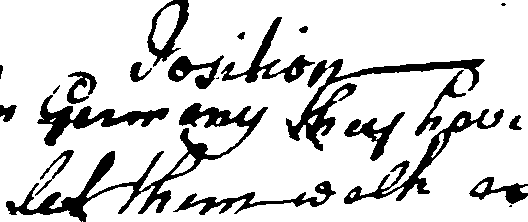 Position
Germany they have
let them walk